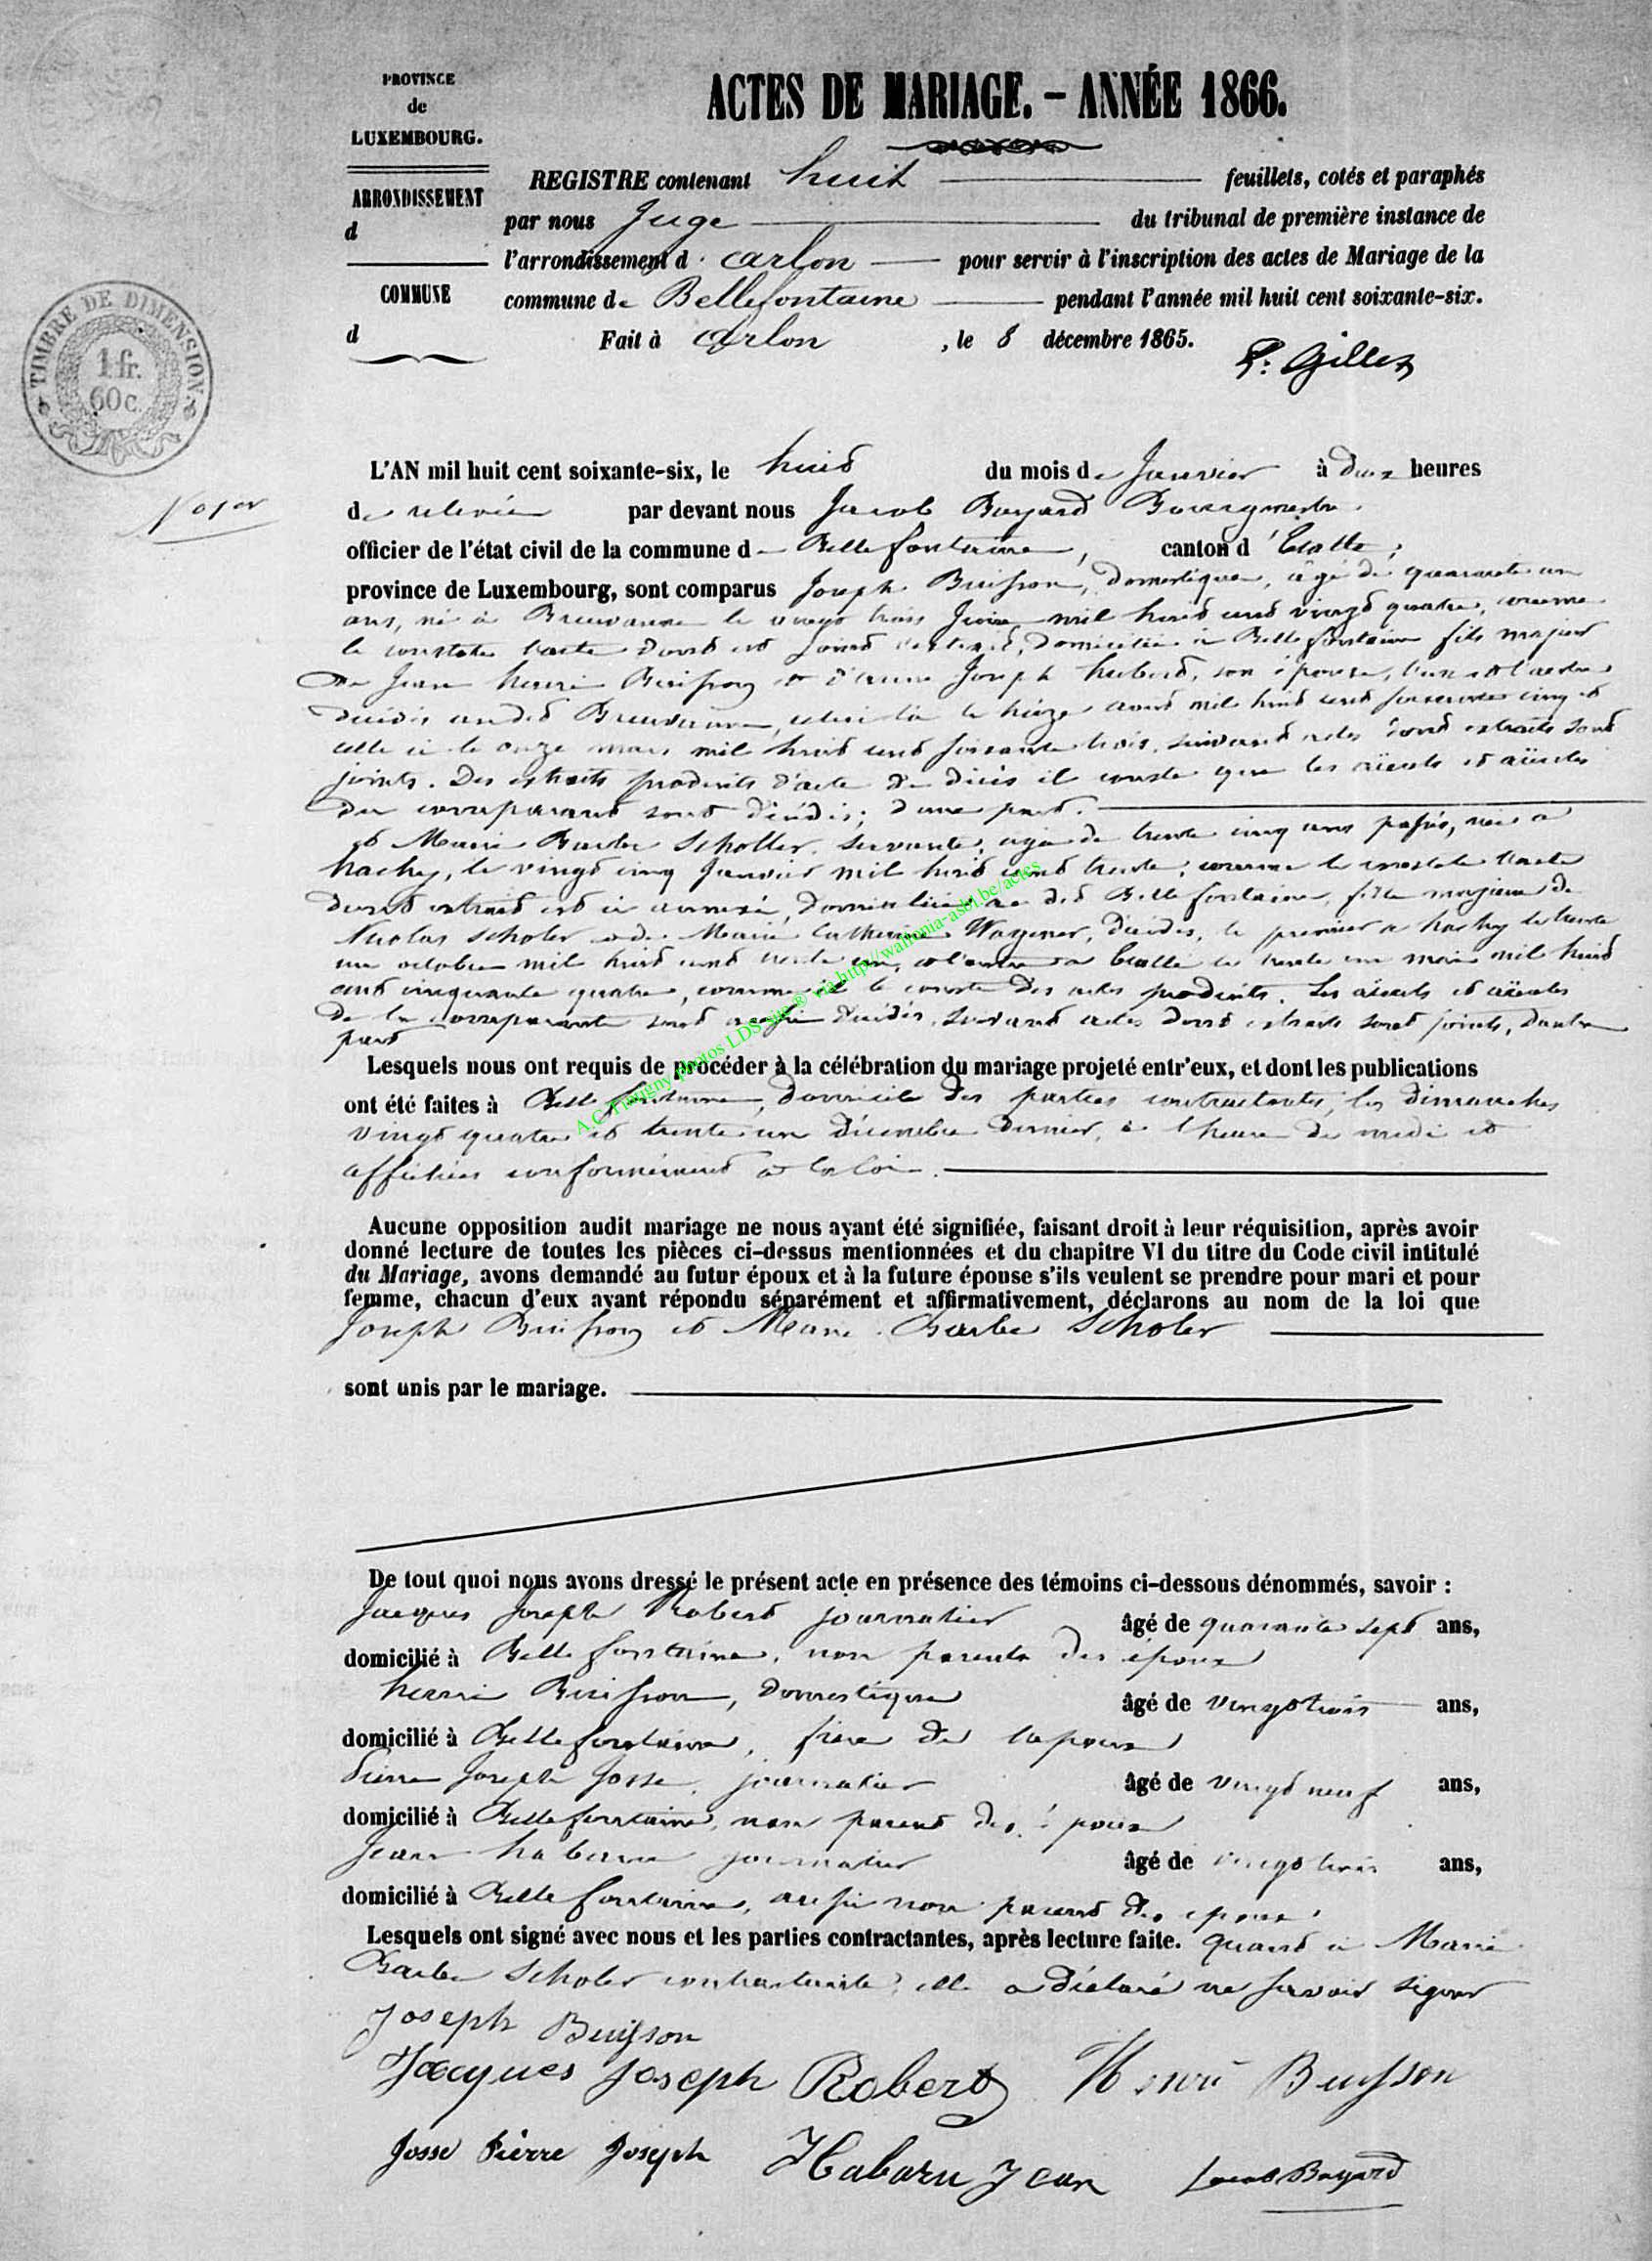 PROVINCE
de
LUXEMBOURG.
ARRONDISSEMENT
d
COMMUNE
d
ACTES DE MARIAGE. – ANNÉE 1866.
REGISTRE contenant huit feuillets, cotés et paraphés
par nous Juge du tribunal de première instance de
l'arrondissement d'arlon pour servir à l'inscription des actes de Mariage de la
commune de Bellefontaine pendant l'année mil huit cent soixante-six.
Fait à Arlon, le 8 décembre 1865.
TIMBRE DE DIMENSION.
1 fr.
60 c.
L'AN mil huit cent soixante-six, le huit du mois de Janvier à deux heures
de relevée par devant nous Jacob Bayard Bourgmestre
officier de l'état civil de la commune de Bellefontaine, canton d'Etalle,
province de Luxembourg, sont comparus Joseph Buisson, Domestique, âgé de quarante un
ans, né à le vingt trois mil huit cent vingt quatre, comme
le constate l'acte dont est joint, Domicilié à Bellefontaine fils majeur
De Jean henri Buisson et d'anne Joseph hubert, son épouse, l'un et l'autre
décédés le treize aout mil huit cent cinq et
celle ci le onze mars mil huit cent soixante trois, suivant actes dont extraits sont
joints. Des extraits produits d'acte de décès il conste que les aïeuls et aïeules
du comparant sont décédés; d'une part.
et Marie Barbe Scholler, servante, agée de trente cinq ans passés, née a
hachy, le vingt cinq Janvier mil huit cent trente, comme le constate l'acte
dont extrait est ci annexé, Domiciliée au dit Bellefontaine, fille majeure de
Nicolas Scholer et de Marie Catherine Wagener, décédés, le premier a hachy le trente
un octobre mil huit cent trente un, et l'autre a Etalle le trente un mai mil huit
cent cinquante quatre, comme il le conste des actes produits. Les aïeuls et aïeules
De la comparante sont aussi décédés, suivant actes dont extraits sont joints, d'autre
part
Lesquels nous ont requis de procéder à la célébration du mariage projeté entr'eux, et dont les publications
ont été faites à Bellefontaine, domicile des parties contractantes, les dimanches
vingt quatre et trente un Décembre dernier, à l'heure de midi et
affichées conformément a la loi.
Aucune opposition audit mariage ne nous ayant été signifiée, faisant droit à leur réquisition, après avoir
donné lecture de toutes les pièces ci-dessus mentionnées et du chapitre VI du titre du Code civil intitulé
du Mariage, avons demandé au futur époux et à la future épouse s'ils veulent se prendre pour mari et pour
femme, chacun d'eux ayant répondu séparément et affirmativement, déclarons au nom de la loi que
Joseph Buisson et Marie Barbe Scholer
sont unis par le mariage.
De tout quoi nous avons dressé le présent acte en présence des témoins ci-dessous dénommés, savoir :
Jacques Joseph Robert journalier âgé de quarante sept ans,
domicilié à Bellefontaine, non parents des époux
henri Buisson, Domestique âgé de vingt trois ans,
domicilié à Bellefontaine, frère de l'époux
Pierre Joseph Josse, journalier âgé de vingt neuf ans,
domicilié à Bellefontaine, non parent des époux
Jean habaru journalier âgé de vingt trois ans,
domicilié à Bellefontaine, aussi non parent des époux
Lesquels ont signé avec nous et les parties contractantes, après lecture faite. quant à Marie
Barbe Scholer contractante, elle a déclaré ne savoir signer
Joseph Buisson
Jacques Joseph Robert Henri Buisson
Josse Pierre Joseph Habaru Jean Jacob Bayard